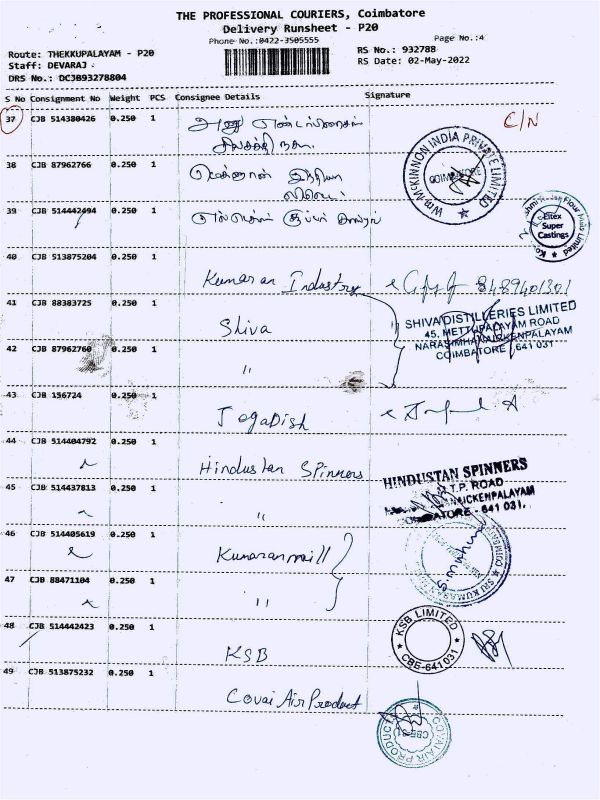 THE PROFESSIONAL COURIERS, Coimbatore
Delivery Runsheet - P20
Phone No.:0422-3505555
Page No.:4
Route: THEKKUPALAYAM - P20
Staff: DEVARAJ .
DRS No.: DCJB93278804
RS No.: 932788
RS Date: 02-May-2022
S No Consignment No Weight PCS Consignee Details Signature
37 CJB 514380426 0.250 1
C/N
38 CJB 87962766 0.250 1
WM MCKINNON INDIA PRIVATE LIMITED
COIMBATORE
39 CJB 514442494 0.250 1
Eltex
Super
Castings
40 CJB 513875204 0.250 1
Kumaran Industry 8489401301
41 CJB 88383725 0.250 1
Shiva
SHIVA DISTILLERIES LIMITED
45, METTUPALAYAM ROAD
NARASIMHANAICKENPALAYAM
COIMBATORE - 641 031
42 CJB 87962760 0.250 1
"
43 CJB 156724 0.250 1
JegaDish
44 CJB 514404792 0.250 1
Hindustan Spinners
HINDUSTAN SPINNERS
T.P. ROAD
NAICKENPALAYAM
COIMBATORE - 641 031.
45 CJB 514437813 0.250 1
"
46 CJB 514405619 0.250 1
Kumaranmill
47 CJB 88471104 0.250 1
"
48 CJB 514442423 0.250 1
KSB
KSB LIMITED
CBE-641 031
49 CJB 513875232 0.250 1
Covai Air Product
COVAI AIR PRODUCTS